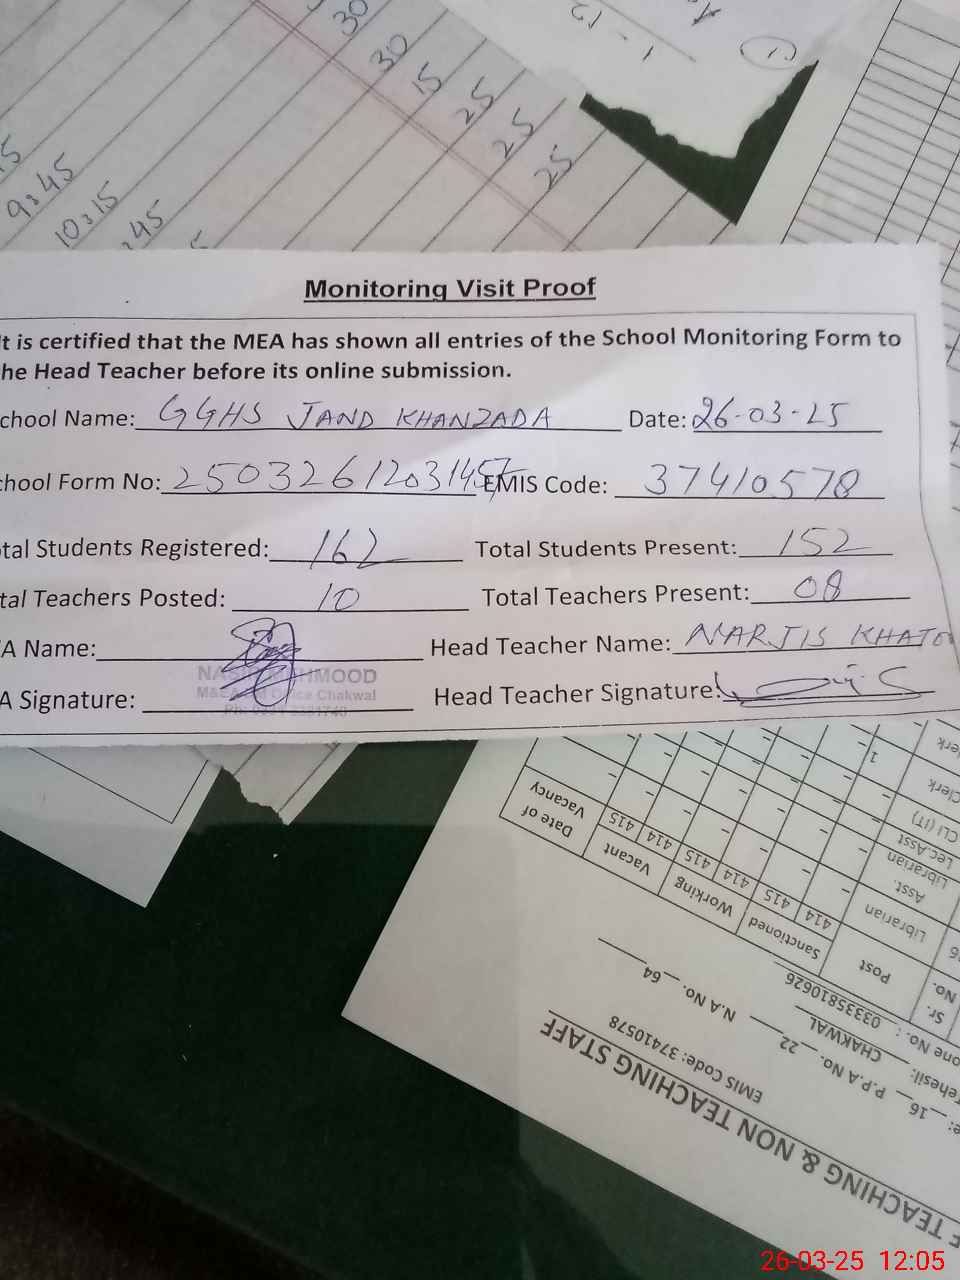 30
30
15
25
25
25
9:45
10:15
:45
1 - 12
Monitoring Visit Proof
It is certified that the MEA has shown all entries of the School Monitoring Form to
he Head Teacher before its online submission.
chool Name: GGHS JAND KHANZADA Date: 26-03-25
hool Form No: EMIS Code: 37410578
tal Students Registered: 162 Total Students Present: 152
tal Teachers Posted: 10 Total Teachers Present: 08
A Name: Head Teacher Name: NARJIS KHATO
MOOD
Chakwal
A Signature: Head Teacher Signature:
F TEACHING & NON TEACHING STAFF
EMIS Code: 37410578
e: 16 P.P.A No. 22 N.A No. 64
ehesil: CHAKWAL
one No. : 03335810626
Sr. No. Post Sanctioned Working Vacant Date of Vacancy
414 415 414 415 414 415
16 Librarian - - - - - -
Asst. Librarian - - - - - -
Lec.Asst - - - - - -
CLI (IT) - - - - - -
Clerk
lerk
26-03-25 12:05